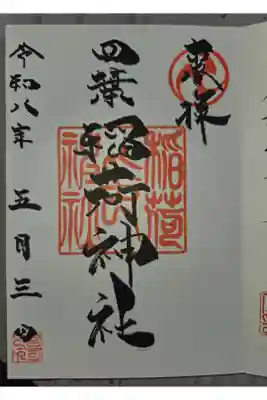 奉拝
四葉稲荷神社
稲荷
神社
令和八年 五月三日